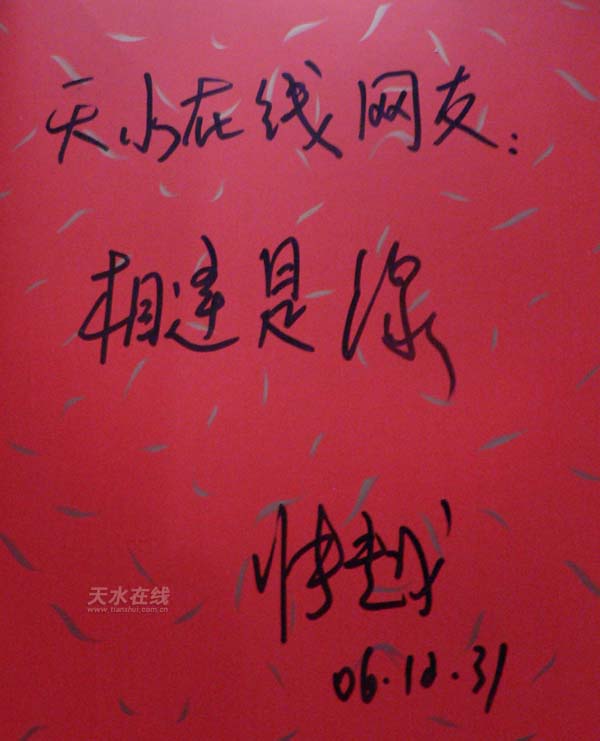 天水在线网友：
相逢是缘
天水在线
www.tianshui.com.cn
06.12.31